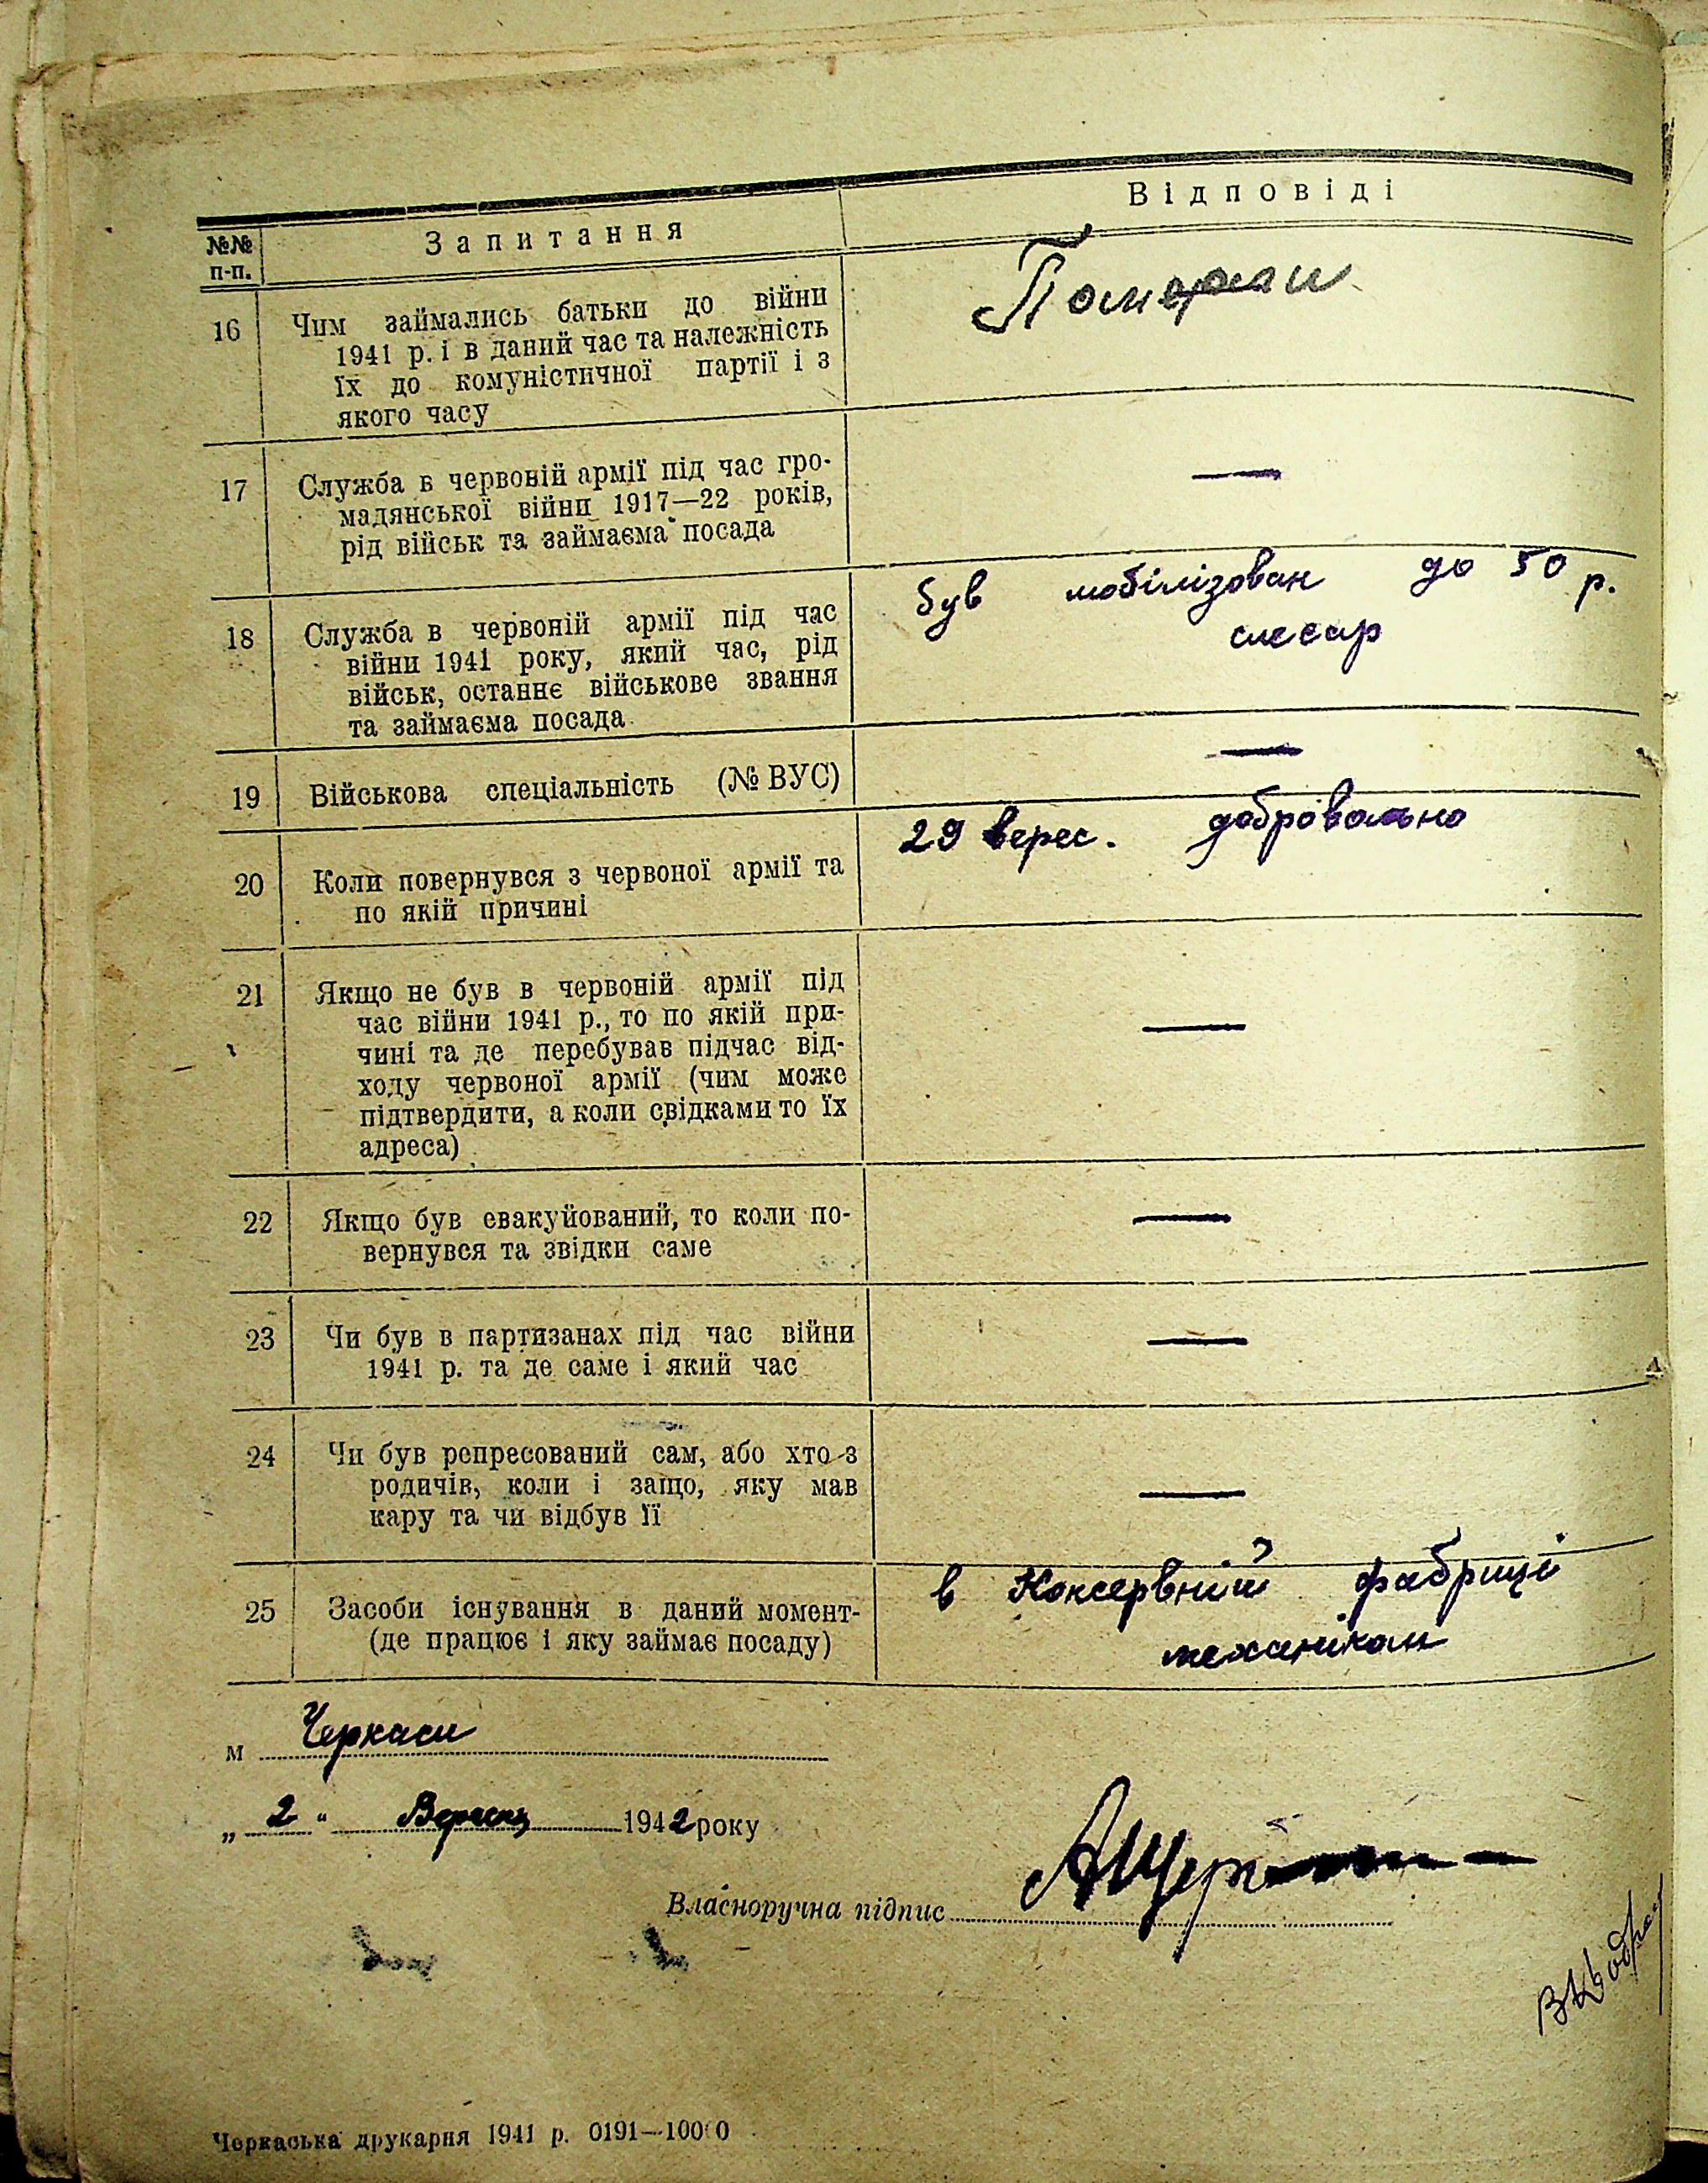 №№ п-п. Запитання Відповіді
16 Чим займались батьки до війни
1941 р. і в даний час та належність
їх до комуністичної партії і з
якого часу
Померли
17 Служба в червоній армії під час гро-
мадянської війни 1917—22 років,
рід військ та займаєма посада
—
18 Служба в червоній армії під час
війни 1941 року, який час, рід
військ, останнє військове звання
та займаєма посада
був мобілізован до 50 р.
слесар
19 Військова спеціальність (№ ВУС)
—
20 Коли повернувся з червоної армії та
по якій причині
29 верес. добровольно
21 Якщо не був в червоній армії під
час війни 1941 р., то по якій при-
чині та де перебував підчас від-
ходу червоної армії (чим може
підтвердити, а коли свідками то їх
адреса)
—
22 Якщо був евакуйований, то коли по-
вернувся та звідки саме
—
23 Чи був в партизанах під час війни
1941 р. та де саме і який час
—
24 Чи був репресований сам, або хто з
родичів, коли і защо, яку мав
кару та чи відбув її
—
25 Засоби існування в даний момент-
(де працює і яку займає посаду)
в Консервній фабриці
механіком
м Черкаси
„ 2 “ Вересня 1942 року
Власноручна підпис
Черкаська друкарня 1941 р. 0191—10000